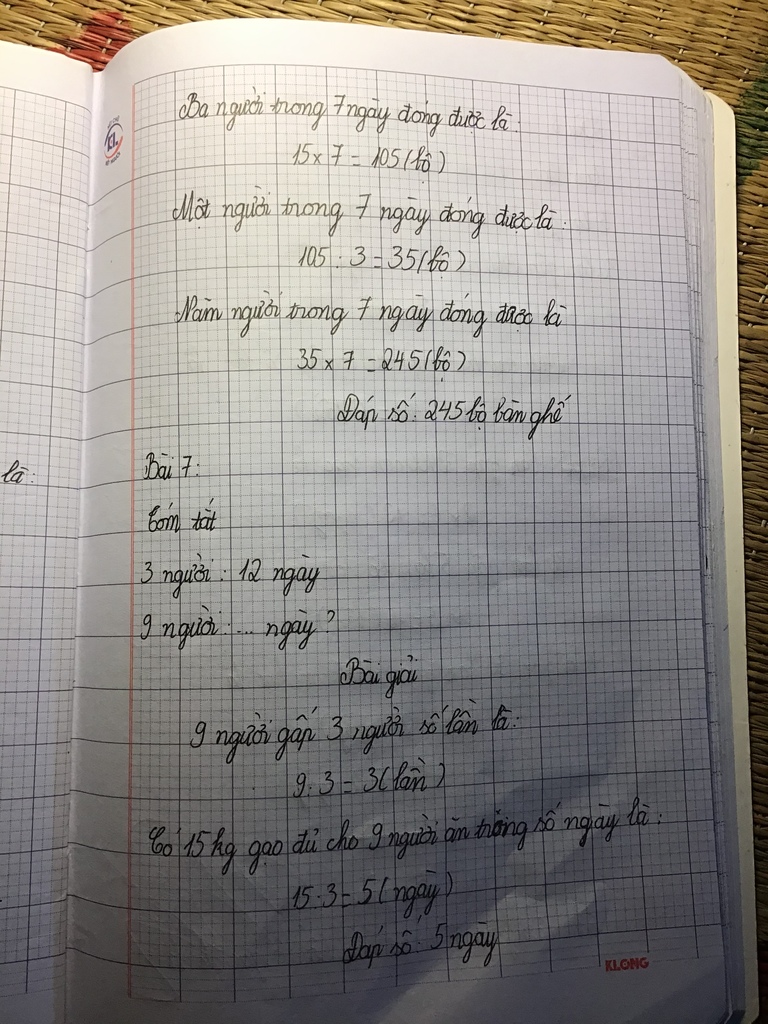 Ba người trong 7 ngày đóng được là:
15 x 7 = 105 (bộ)
Một người trong 7 ngày đóng được là:
105 : 3 = 35 (bộ)
Năm người trong 7 ngày đóng được là
35 x 7 = 245 (bộ)
Đáp số: 245 bộ bàn ghế
là:
Bài 7:
Tóm tắt
3 người: 12 ngày
9 người: ... ngày?
Bài giải
9 người gấp 3 người số lần là:
9 : 3 = 3 (lần)
Có 15 kg gạo đủ cho 9 người ăn trong số ngày là:
15 : 3 = 5 (ngày)
Đáp số: 5 ngày
KLONG